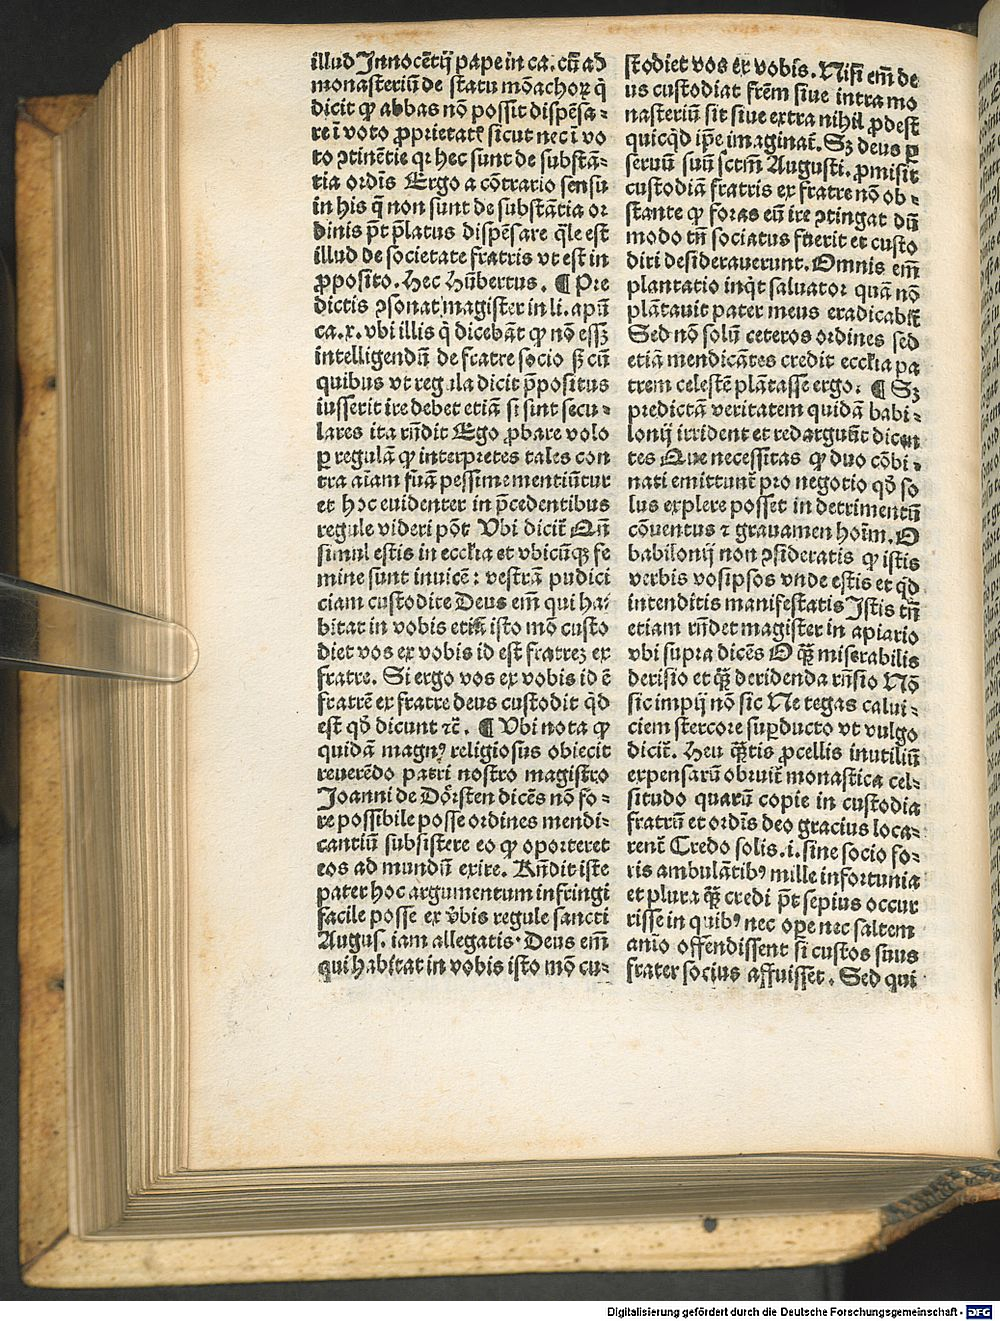 illud Innocētij pape in ca. cū ad
monasteriū de statu mōachoꝝ q̇
dicit ꝙ abbas nō possit dispēsa⸗
re ī voto ꝓprietatꝭ sicut nec ī vo
to ↄtinētie qꝛ hec sunt de substā⸗
tia ordīs Ergo a cōtrario sensu
in his q̄ non sunt de substātia or
dinis p̄t p̄latus dispēsare q̄le est
illud de societate fratris vt est in
ꝓposito. hec hūbertus. ¶ Pre
dictis ↄsonat magister in li. apū
ca.x. vbi illis q̇ dicebāt ꝙ nō essꝫ
intelligendū de fratre socio sꝫ cū
quibus vt regula dicit p̄positus
iusserit ire debet etiā si sint secu⸗
lares ita rn̄dit Ego ꝓbare volo
ꝑ regulā ꝙ interpretes tales con
tra aīam suā pessime mentiūtur
et hoc euidenter in p̄cedentibus
regule videri pōt Vbi dicit̄ Qn̄
simul estis in eccłia et vbicūqꝫ fe
mine sunt inuicē: vestrā pudici
ciam custodite Deus em̄ qui ha⸗
bitat in vobis etiā isto mō custo
diet vos ex vobis id est fratrez ex
fratre. Si ergo vos ex vobis id ē
fratrē ex fratre deus custodit q̇d
est qd̓ dicunt ⁊c̄. ¶ Vbi nota ꝙ
quidā magnꝰ religiosus obiecit
reuerēdo patri nostro magistro
Joanni de Dörsten dicēs nō fo⸗
re possibile posse ordines mendi⸗
cantiū subsistere eo ꝙ oporteret
eos ad mundū exire. Rn̄dit iste
pater hoc argumentum infringi
facile posse ex v̓bis regule sancti
Augus. iam allegatis. Deus em̄
qui habitat in vobis isto mō cu⸗
stodiet vos ex vobis. Nisi em̄ de
us custodiat frēm siue intra mo
nasteriū sit siue extra nihil ꝓdest
quicq̇d ip̄e imaginat̄. Sꝫ deus ꝑ
seruū suū sctm̄ Augusti. ꝓmisit
custodiā fratris ex fratre nō ob⸗
stante ꝙ foras eū ire ↄtingat dū
modo tn̄ sociatus fuerit et custo
diri desiderauerunt. Omnis em̄
plantatio inq̇t saluator quā nō
plātauit pater meus eradicabit̄
Sed nō solū ceteros ordines sed
etiā mendicātes credit eccłia pa
trem celestē plātasse ergo. ¶ Sꝫ
predictā veritatem quidā babi⸗
lonij irrident et redarguūt dicen
tes Que necessitas ꝙ duo cōbi⸗
nati emittunt̄ pro negotio qd̓ so
lus explere posset in detrimentū
cōuentus ⁊ grauamen hoīm. O
babilonij non ↄsideratis ꝙ istis
verbis vosipsos vnde estis et q̇d
intenditis manifestatis Istis tn̄
etiam rn̄det magister in apiario
vbi supra dicēs O qꝫ̄ miserabilis
derisio et qꝫ̄ deridenda rn̄sio Nō
sic impij nō sic Ne tegas calui⸗
ciem stercore suꝑducto vt vulgo
dicit̄. Heu qꝫ̄tis ꝓcellis inutiliū
expensarū obruit̄ monastica cel⸗
situdo quarū copie in custodia
fratrū et ordīs deo gracius loca⸗
rent̄ Credo solis.i. sine socio fo⸗
ris ambulātibꝰ mille infortunia
et plura qꝫ̄ credi p̄t sepius occur
risse in quibꝰ nec oꝑe nec saltem
anīo offendissent si custos suus
frater socius affuisset. Sed qui
Digitalisierung gefördert durch die Deutsche Forschungsgemeinschaft - DFG